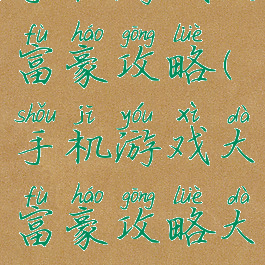 fù háo gōng lüè
富豪攻略(
shǒu jī yóu xì dà
手机游戏大
fù háo gōng lüè dà
富豪攻略大